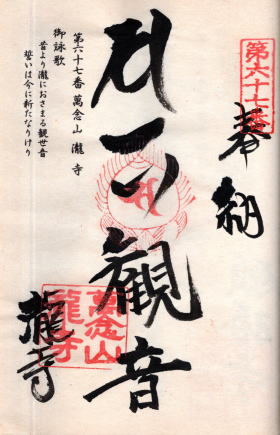 第六十七番
奉納
聖観音
瀧寺
萬念山
瀧寺
第六十七番 萬念山 瀧寺
御詠歌
昔より瀧におさまる観世音
誓いは今に新たなりけり